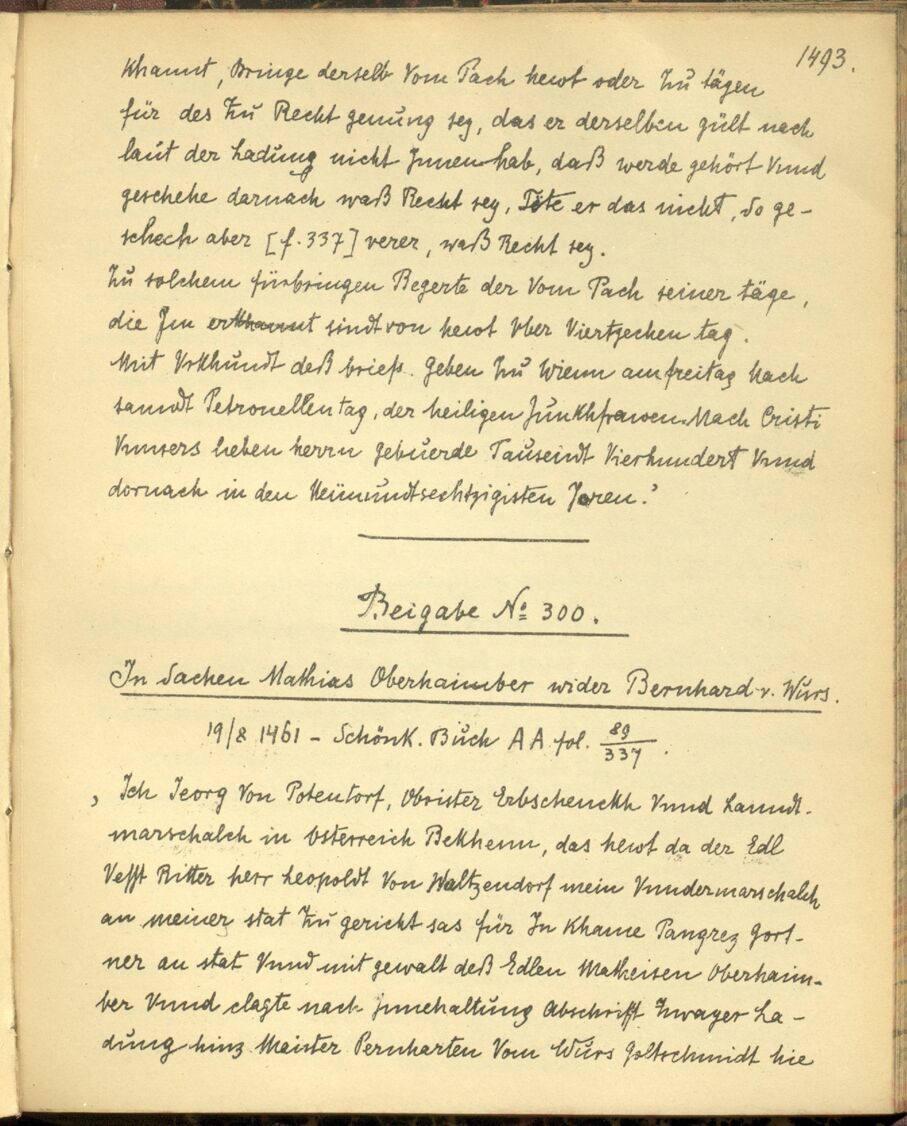 1493.
Khannt, Bringe derselb Vom Pach hewt oder Zu tägen
für des Zu Recht genung sey, das er derselben gült nach
laut der Ladung nicht Jnnen hab, daß werde gehört Vnnd
geschehe darnach waß Recht sey, Tëte er das nicht, So ge-
schech aber [f. 337] verer, waß Recht sey.
Zu solchem fürbringen Begerte der Vom Pach seiner täge,
die Jm erkhannt sindt von hewt Vber Viertzechen tag.
Mit Vrkhundt deß briefs. Geben Zu Wienn am freitag Nach
sanndt Petronellen tag, der heiligen Junkhfrawen. Nach Cristi
Vnnsers lieben herrn gebuerde Tauseindt Vierhundert Vnnd
dornach in den Neünundtsechtzigisten Joren.'
Beigabe No 300.
In Sachen Mathias Oberhaimber wider Bernhard v. Wurs.
19/8 1461 - Schönk. Buch AA fol. 89/337.
, Ich Jeorg Von Potendorf, Obrister Erbschenckh Vnnd Lanndt-
marschalch in Österreich Bekhenn, das hewt da der Edl
Vesst Ritter herr Leopoldt Von Waltzendorf mein Vnndermarschalch
an meiner stat Zu gericht sas für In khame Pangrez Gort-
ner an stat Vnnd mit gewalt deß Edlen Matheisen Oberhaim-
ber Vnnd clagte nach Jnnehaltung Abschrifft Zwayer La-
dung hinz Maister Pernharten Vom Wurs Goltschmidt hie